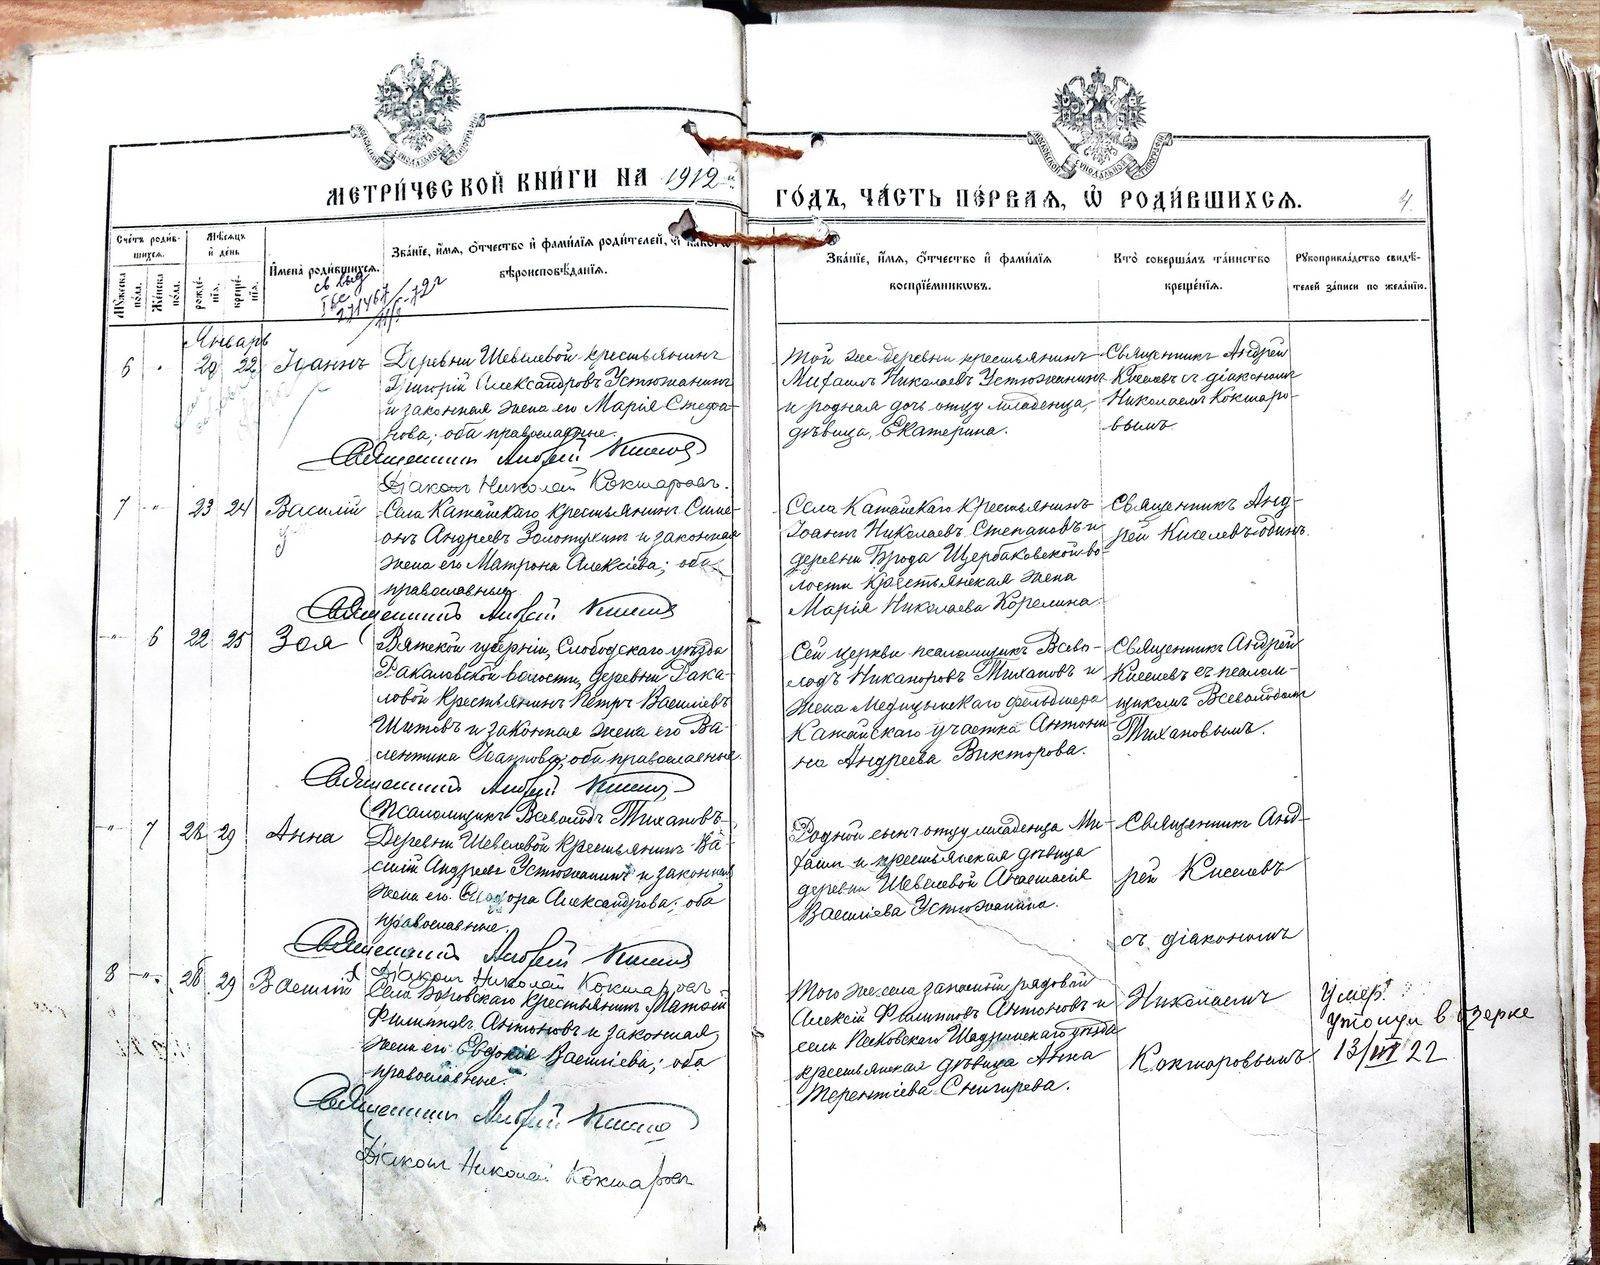 МЕТРИ́ЧЕСКОЙ КНИ́ГИ НА 1912й
ГО́ДЪ, ЧА́СТЬ ПЕ́РВАѦ, Ѽ РОДИ́ВШИХСѦ.
4.
Сче́тъ роди́в-
шихсѧ.
Мꙋ́жеска по́ла.
Же́нска по́ла.
Мѣ́сѧцъ и҆ де́нь
рожде́-
нїѧ.
креще́-
нїѧ.
И҆мена̀ роди́вшихсѧ.
св выд
271467
Зва́нїе, и҆́мѧ, ѻ҆́тчество и҆ фами́лїѧ роди́телей, и҆ како́гѡ
вѣроисповѣ́данїѧ.
Зва́нїе, и҆́мѧ, ѻ҆́тчество и҆ фами́лїѧ
воспрїе́мникѡвъ.
Кто̀ соверша́лъ та́инство
креще́нїѧ.
Рꙋкоприкла́дство свидѣ́-
телей за́писи по жела́нїю.
Январь
6 " 20 22 Іоаннъ
Деревни Шевелевой крестьянинъ
Григорій Александровъ Устюжанинъ
и законная жена его Марія Стефа-
нова; оба православные.
Священникъ Андрей Киселевъ
Діаконъ Николай Кокшаровъ.
Той же деревни крестьянинъ
Михаилъ Николаевъ Устюжанинъ
и родная дочь отцу младенца,
дѣвица, Екатерина.
Священникъ Андрей
Киселевъ съ діакономъ
Николаемъ Кокшаро-
вымъ
7 " 23 24 Василій
Села Катайскаго крестьянинъ Симе-
онъ Андреевъ Золотухинъ и законная
жена его Матрона Алексіева; оба
православные
Священникъ Андрей Киселевъ
Села Катайскаго крестьянинъ
Іоаннъ Николаевъ Степановъ и
деревни Брода Щербаковской во-
лости крестьянская жена
Марія Николаева Корелина.
Священникъ Анд-
рей Киселевъ одинъ.
" 6 22 25 Зоя
Вятской губерніи, Слободскаго уѣзда
Ракаловской волости, деревни Рака-
ловой крестьянинъ Петръ Васильевъ
Шитовъ и законная жена его Ва-
лентина Іоаннова; оба православные.
Священникъ Андрей Киселевъ
Псаломщикъ Всеволодъ Тихановъ.
Сей церкви псаломщикъ Всево-
лодъ Никаноровъ Тихановъ и
жена Медицынскаго фельдшера
Катайскаго участка Антони-
на Андреева Викторова.
Священникъ Андрей
Киселевъ съ псалом-
щикомъ Всеволодомъ
Тихановымъ.
" 7 28 29 Анна
Деревни Шевелевой крестьянинъ Ва-
силій Андреевъ Устюжанинъ и законная
жена его Александрова; оба
православные.
Священникъ Андрей Киселевъ
Діаконъ Николай Кокшаровъ
Родной сынъ отцу младенца Ми-
хаилъ и крестьянская дѣвица
деревни Шевелевой Анастасія
Василіева Устюжанина.
Священникъ Анд-
рей Киселевъ
съ діакономъ
Николаемъ
Кокшаровымъ
8 " 28 29 Василій
Села Боровскаго крестьянинъ Матѳій
Филипповъ Антоновъ и законная
жена его Евдокія Василіева; оба
православные.
Священникъ Андрей Киселевъ
Діаконъ Николай Кокшаровъ
Того же села запасный рядовой
Алексій Филипповъ Антоновъ и
села Шадринскаго уѣзда
крестьянская дѣвица Анна
Терентіева Снигирева.
Умер.
утонул в озерке
13/VII 22